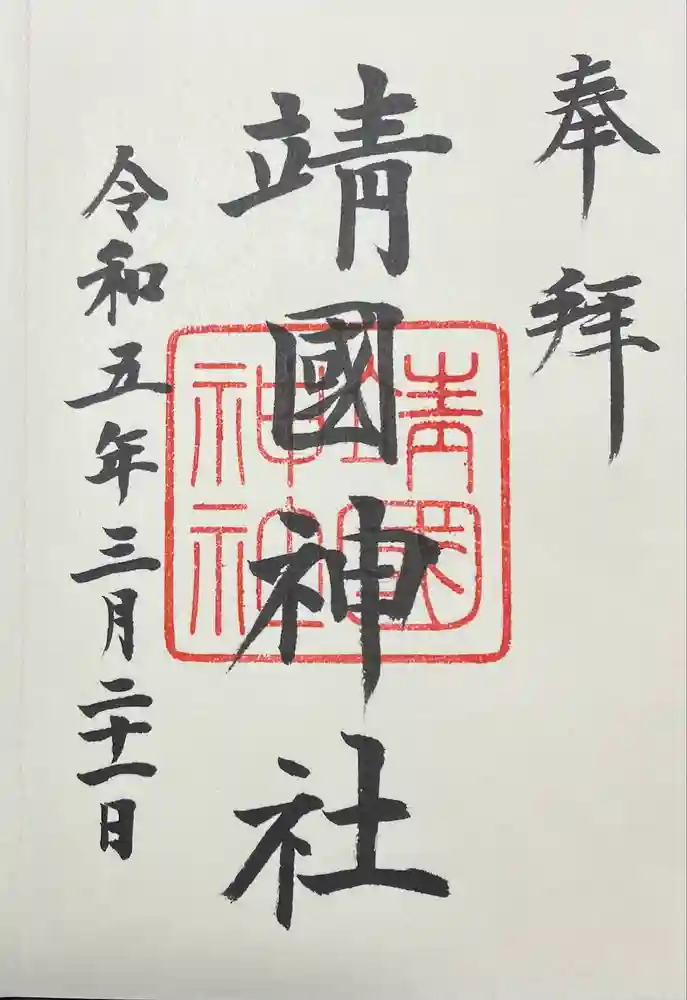 奉拜
靖國神社
靖國
神社
令和五年三月二十一日